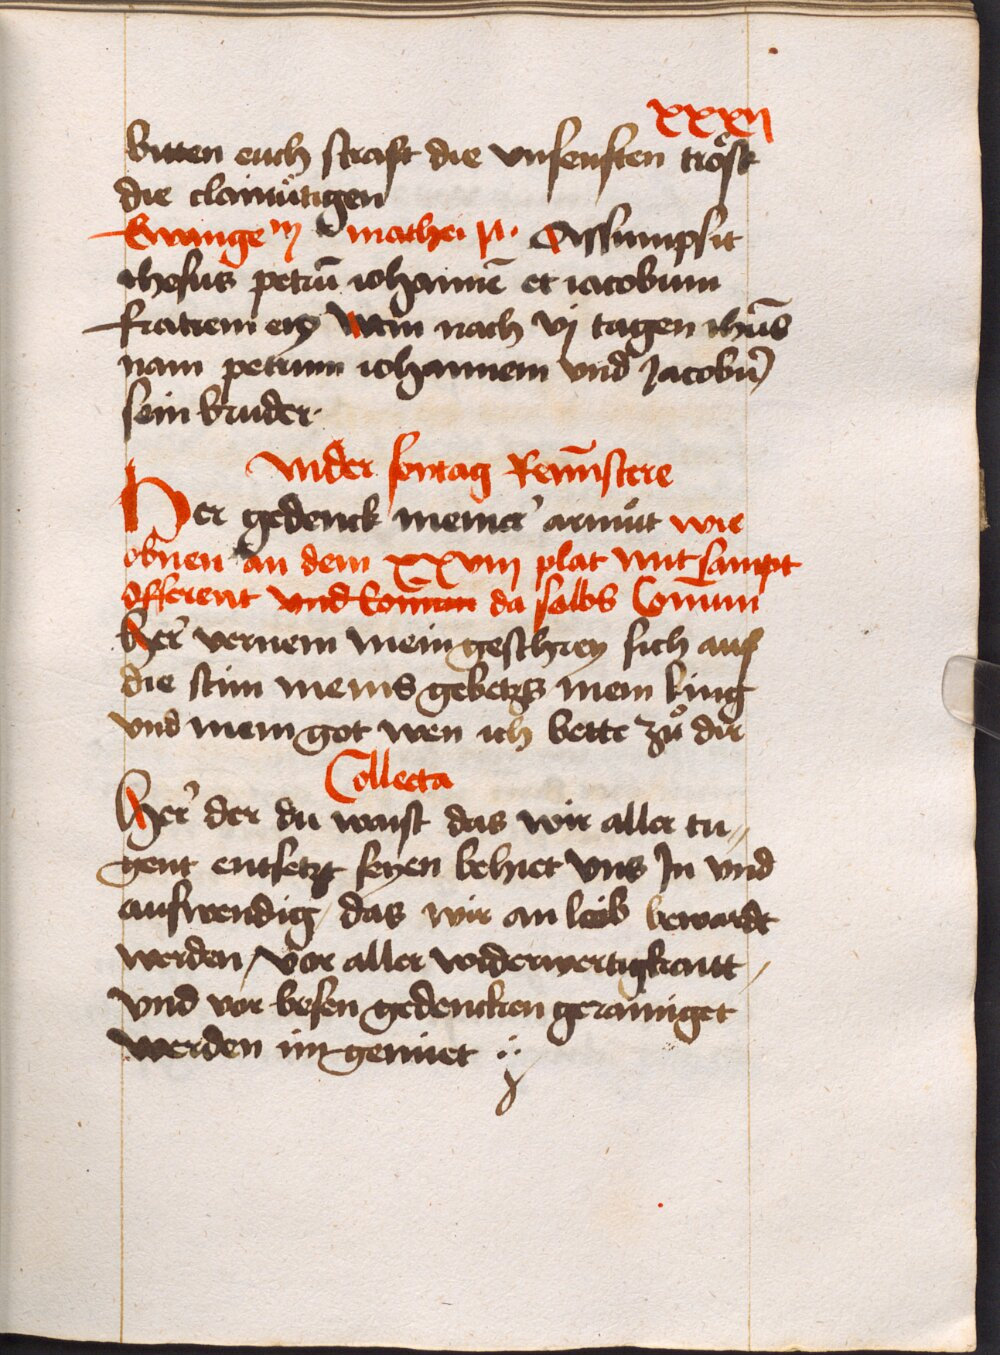 xxxij
bitten euch straft die vnsenften tröst
die clainmütigen
Ewangem mathei Assumpsit
ihesus petrū iohannē et iacobum
fratrem eiꝯ Wan nach vj tagen ihūs
nam petrum iohannem vnd Jacobū
sein bruder·
Ander sontag Remīstere
Her gedenck meiner armüt wie
obnen an dem xxviij plat mit sampt
offerent vnd Comun da selbs Comūn
Her vernem mein geschrey sich auf
die stim meins gebetzs mein king
vnd mein got wen ich bette zů dir
Collecta
Her der du waist das wir aller tu„
gent entsetzt seyen behuet vns Jn vnd
auswendig / das wir an leib bewardt
werden / vor aller widerwertigkaitt /
vnd vor besen gedencken gerainiget
werden im gemiet ·:·